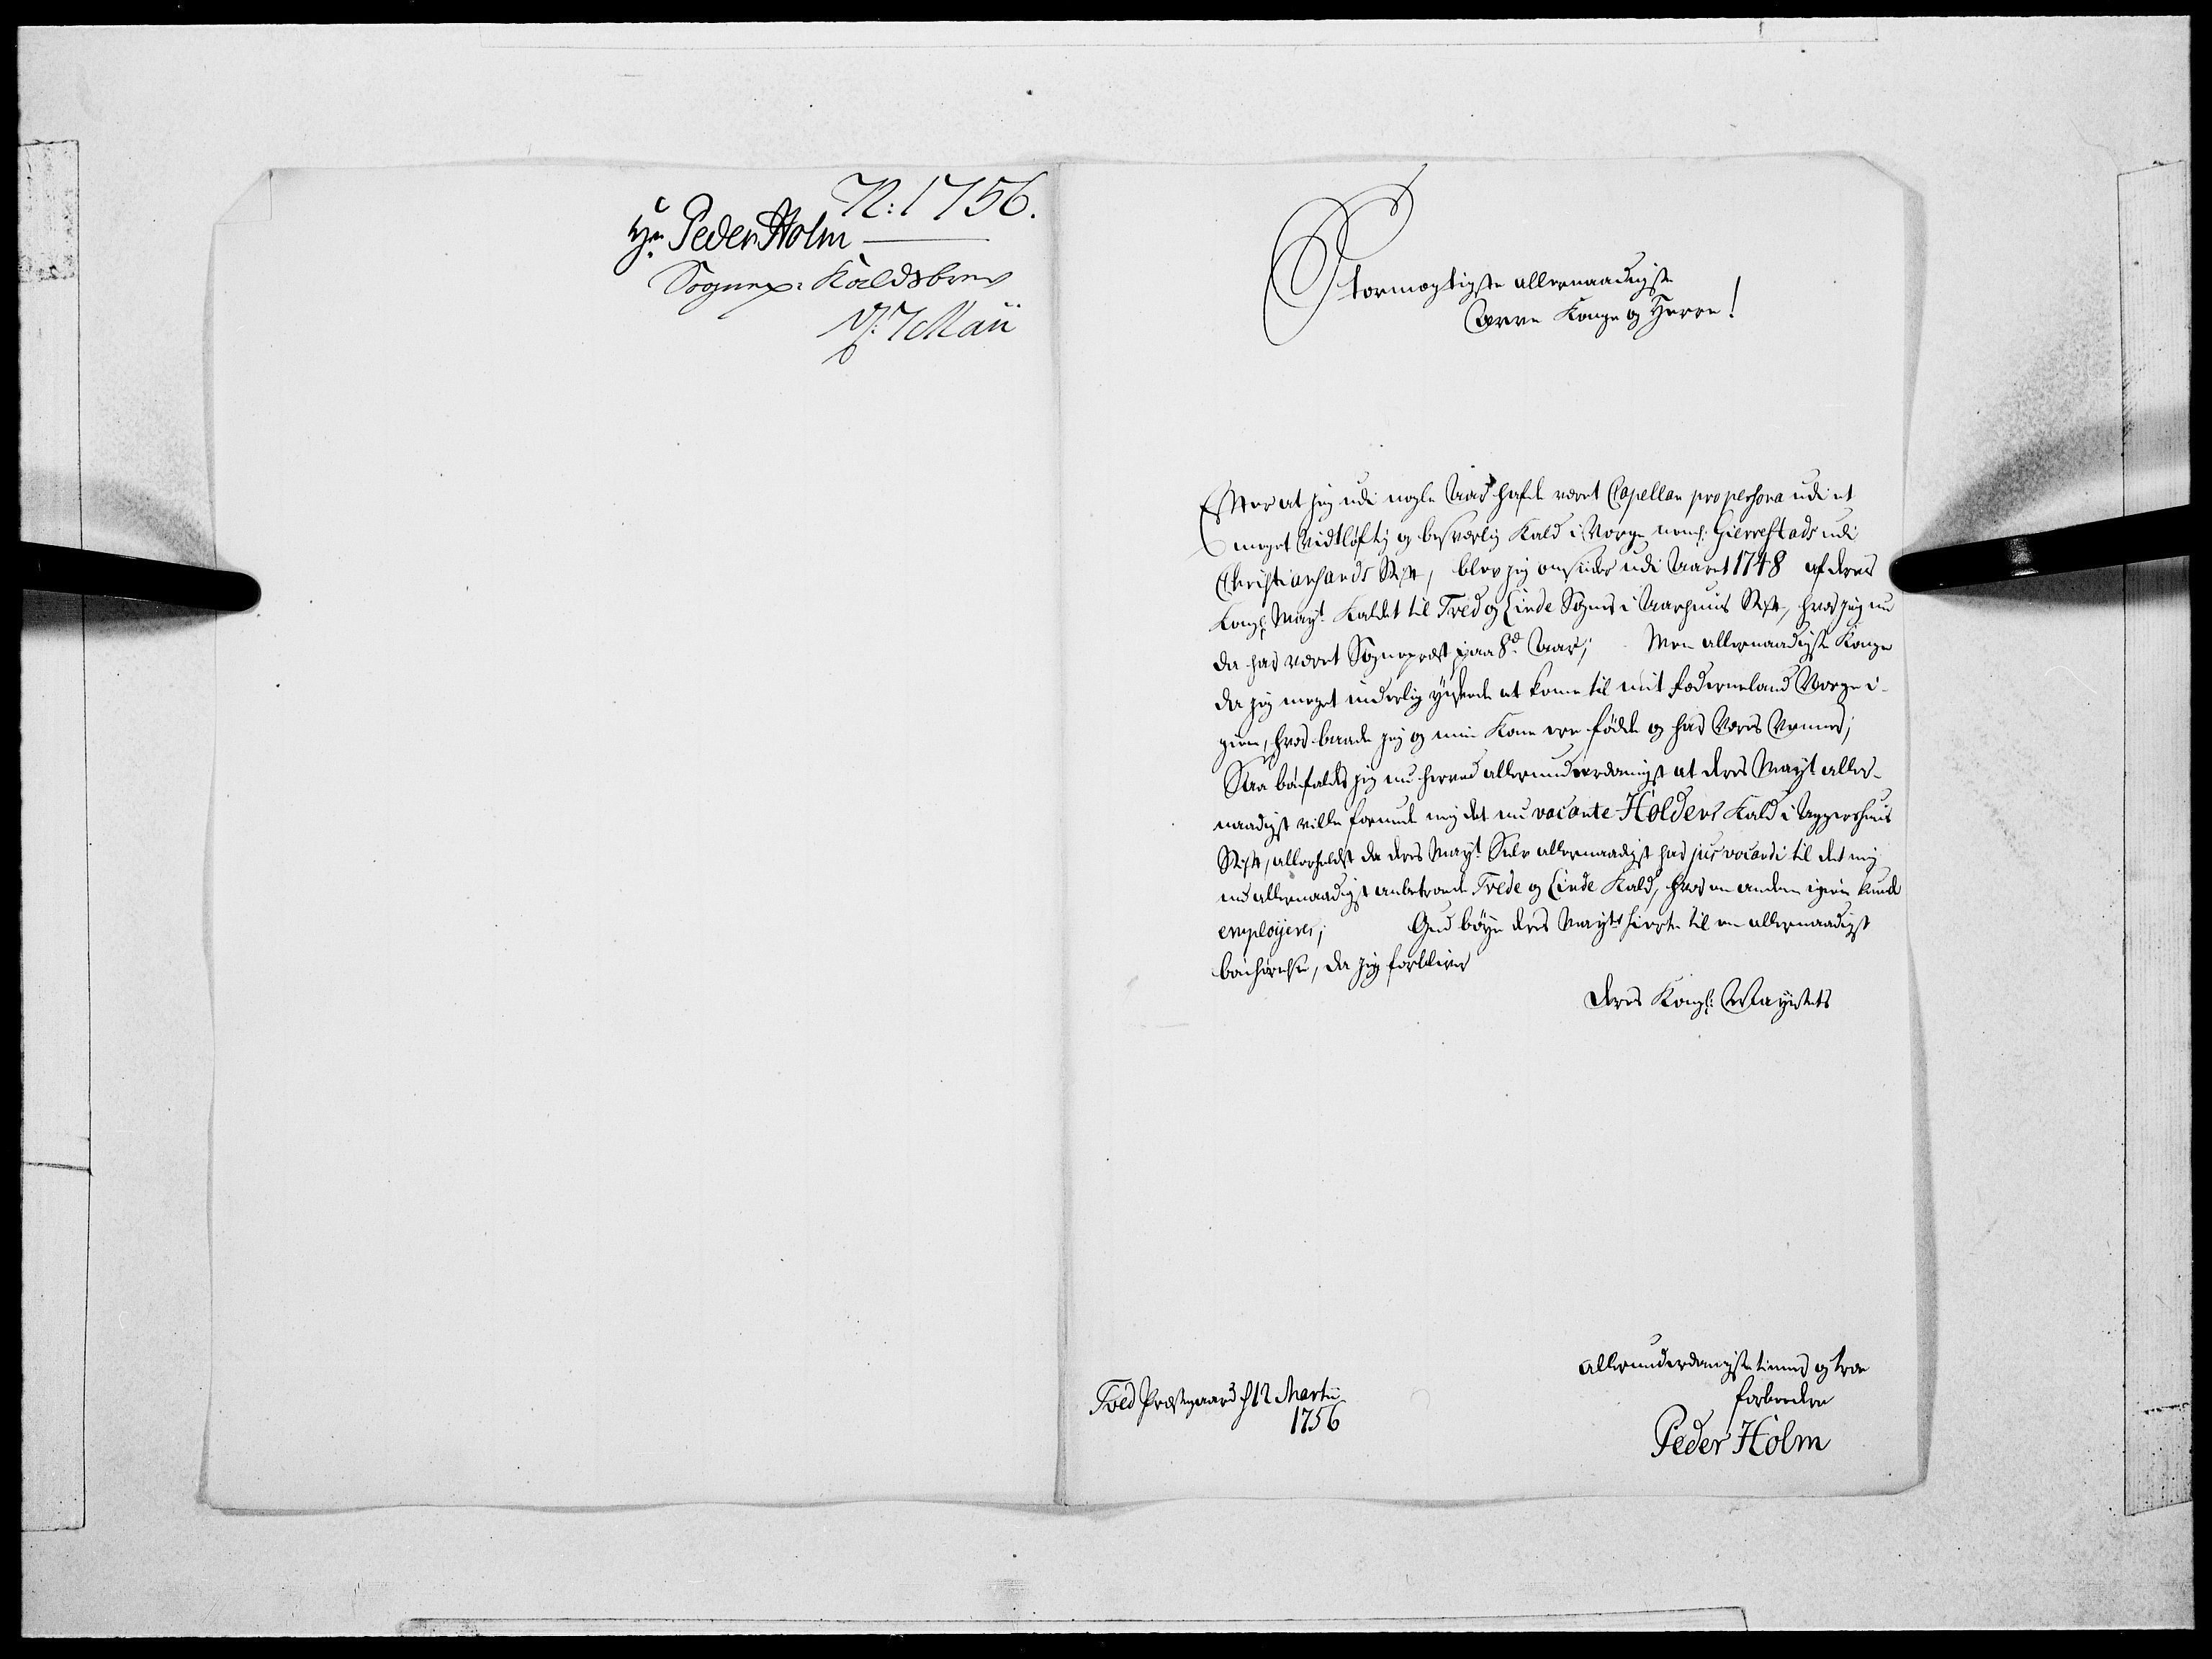 N: 1756.
Hr. Peder Holm
Sognepr: Kaldsbrev
d: 7 Maii
Stormægtigste allernaadigste
Arve Konge og Herre!
Efter at jeg udi nogle Aar hafde været Capellan pro persona udi et
meget Vidtløftig og besværlig Kald i Norge neml: Gierrestads udi
Christiansands Stift, blev jeg omsider udi Aaret 1748 af Deres
Kongl: Mayt. Kaldet til Tved og Linde Sogner i Aarhuus Stift, hvor jeg nu
da har været Sognepræst paa 8de Aar; Men allernaadigste Konge
da jeg meget inderlig ynskede at komme til mit fæderneland Norge i-
gien, hvor baade jeg og min Kone ere fødde og har Vores Venner;
Saa bønfalder jeg nu herved allerunderdanigst at Deres Mayt. aller-
naadigst ville forunde mig det nu vacante Holdens Kald i Aggershuus
Stift, allerhelst da Deres Mayt. Selv allernaadigst har jus vocandi til det mig
nu allernaadigst anbetroede Tvede og Linde Kald, hvor en anden igien kunde
employeres; Gud bøye Deres Mayts hierte til en allernaadigst
bønhørelse, da jeg forbliver
Deres Kongl: Mayestets
Tved Præstegaard d 12 Martii
1756
allerunderdanigste tiener og troe
forbeedere
Peder Holm